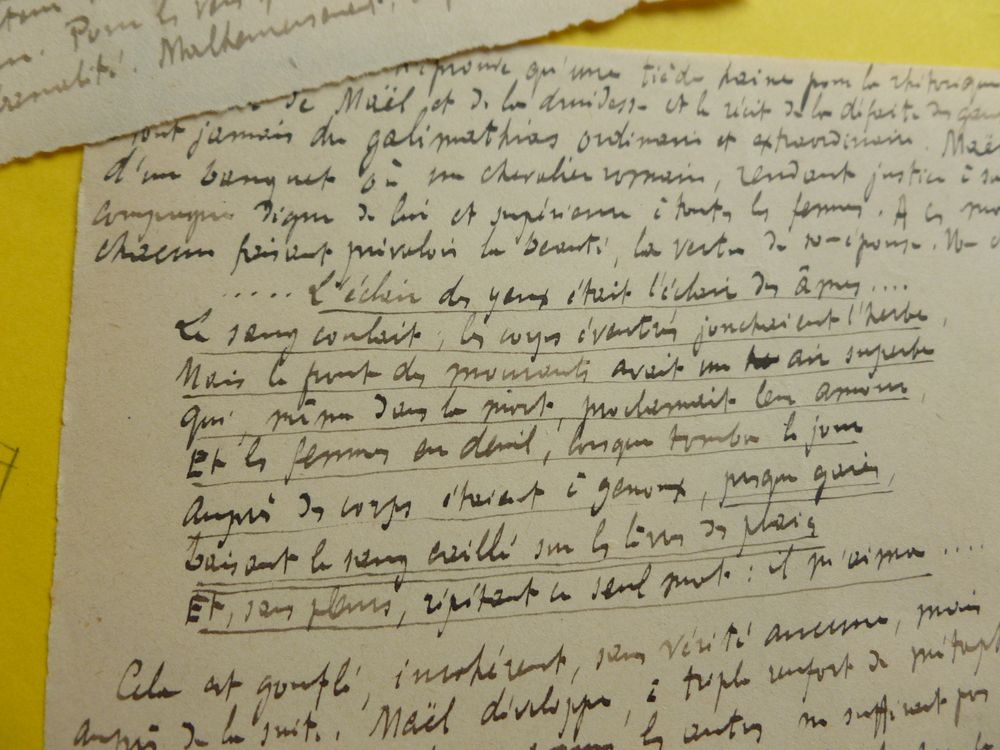 Pour les
Malheureusement,
éprouve qu'une tiède haine pour la rhétorique
de Maël et de la druidesse et le récit de la défaite des
sont jamais du galimathias ordinaire et extraordinaire. Maël
d'un banquet où un chevalier romain, rendant justice à sa
compagne digne de lui et supérieure à toutes les femmes. A ces mots
chacun faisant prévaloir la beauté, la vertu de son épouse.
..... L'éclair des yeux était l'éclair des âmes....
Le sang coulait ; les corps éventrés jonchaient l'herbe,
Mais le front des mourants avait un air superbe
Qui, même dans la mort, proclamait leur amour,
Et les femmes en deuil, lorsque tomba le jour
Auprès des corps étaient à genoux, presque gaies,
Baisant le sang caillé sur les lèvres des plaies
Et, sans pleurs, répétant ce seul mot : il m'aima ....
Cela est gonflé, incohérent, sans vérité aucune, mais
auprès de la suite. Maël développe, à triple renfort de
les autres ne suffisent pas